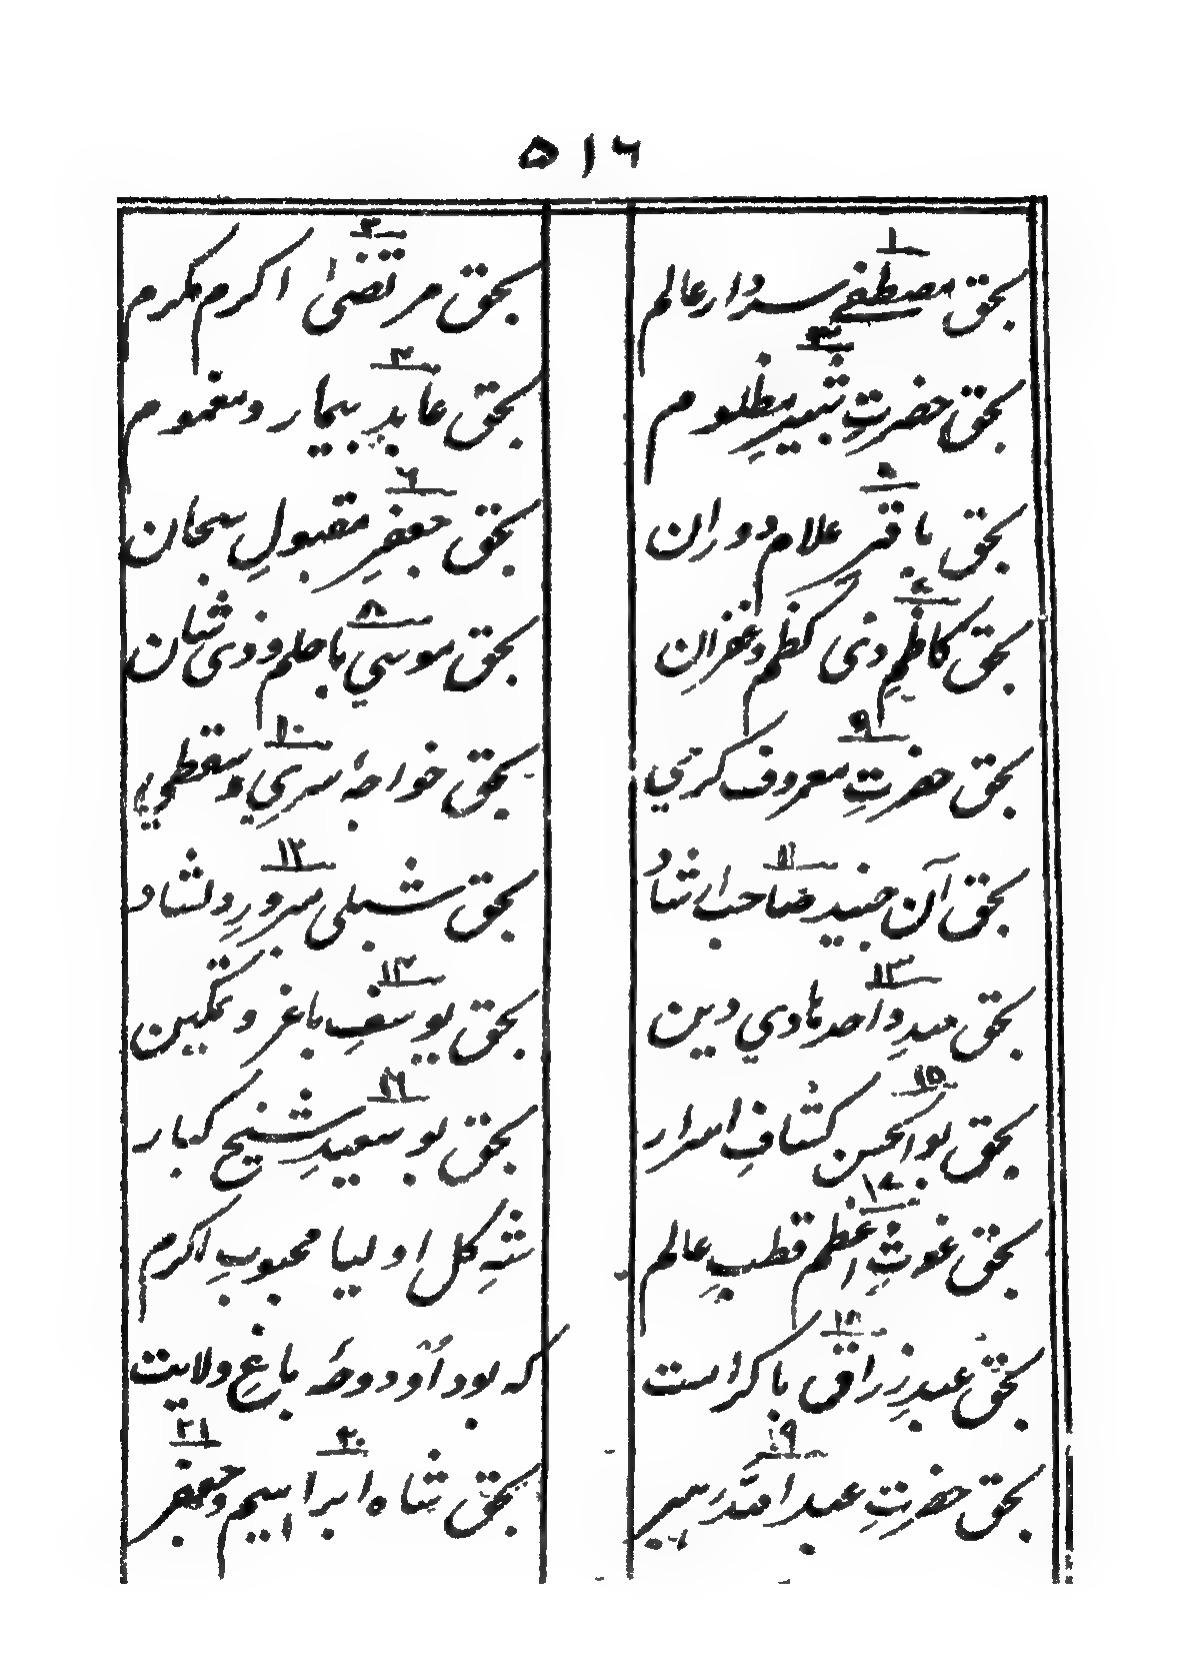 ۵۱۶
۱ ۲
بحق مصطفےٰ سردار عالم بحق مرتضیٰ اکرم مکرم
۳ ۴
بحق حضرتِ شبیرِ مظلوم بحق عابدِ بیمار و مغموم
۵ ۶
بحق باقرِ علام دوران بحق جعفرِ مقبولِ سبحان
۷ ۸
بحق کاظمِ ذی کظم و غفران بحق موسي با حلم و ذی شان
۹ ۱۰
بحق حضرتِ معروف کرخي بحق خواجۂ سري و سقطي
۱۱ ۱۲
بحق آن جنید صاحب ارشاد بحق شبلی سرورِ دلشاد
۱۳ ۱۴
بحق عبدِ واحد هادي دین بحق یوسفِ باعز و تمکین
۱۵ ۱۶
بحق بوالحسن کشافِ اسرار بحق بو سعیدِ شیخ کبار
۱۷
بحق غوثِ اعظم قطبِ عالم شہِ کل اولیا محبوبِ اکرم
۱۸
بحق عبدِ رزاق با کرامت کہ بود او دوحۂ باغِ ولایت
۱۹ ۲۰ ۲۱
بحق حضرتِ عبد اللہ بحق شاہ ابراہیم و جعفر